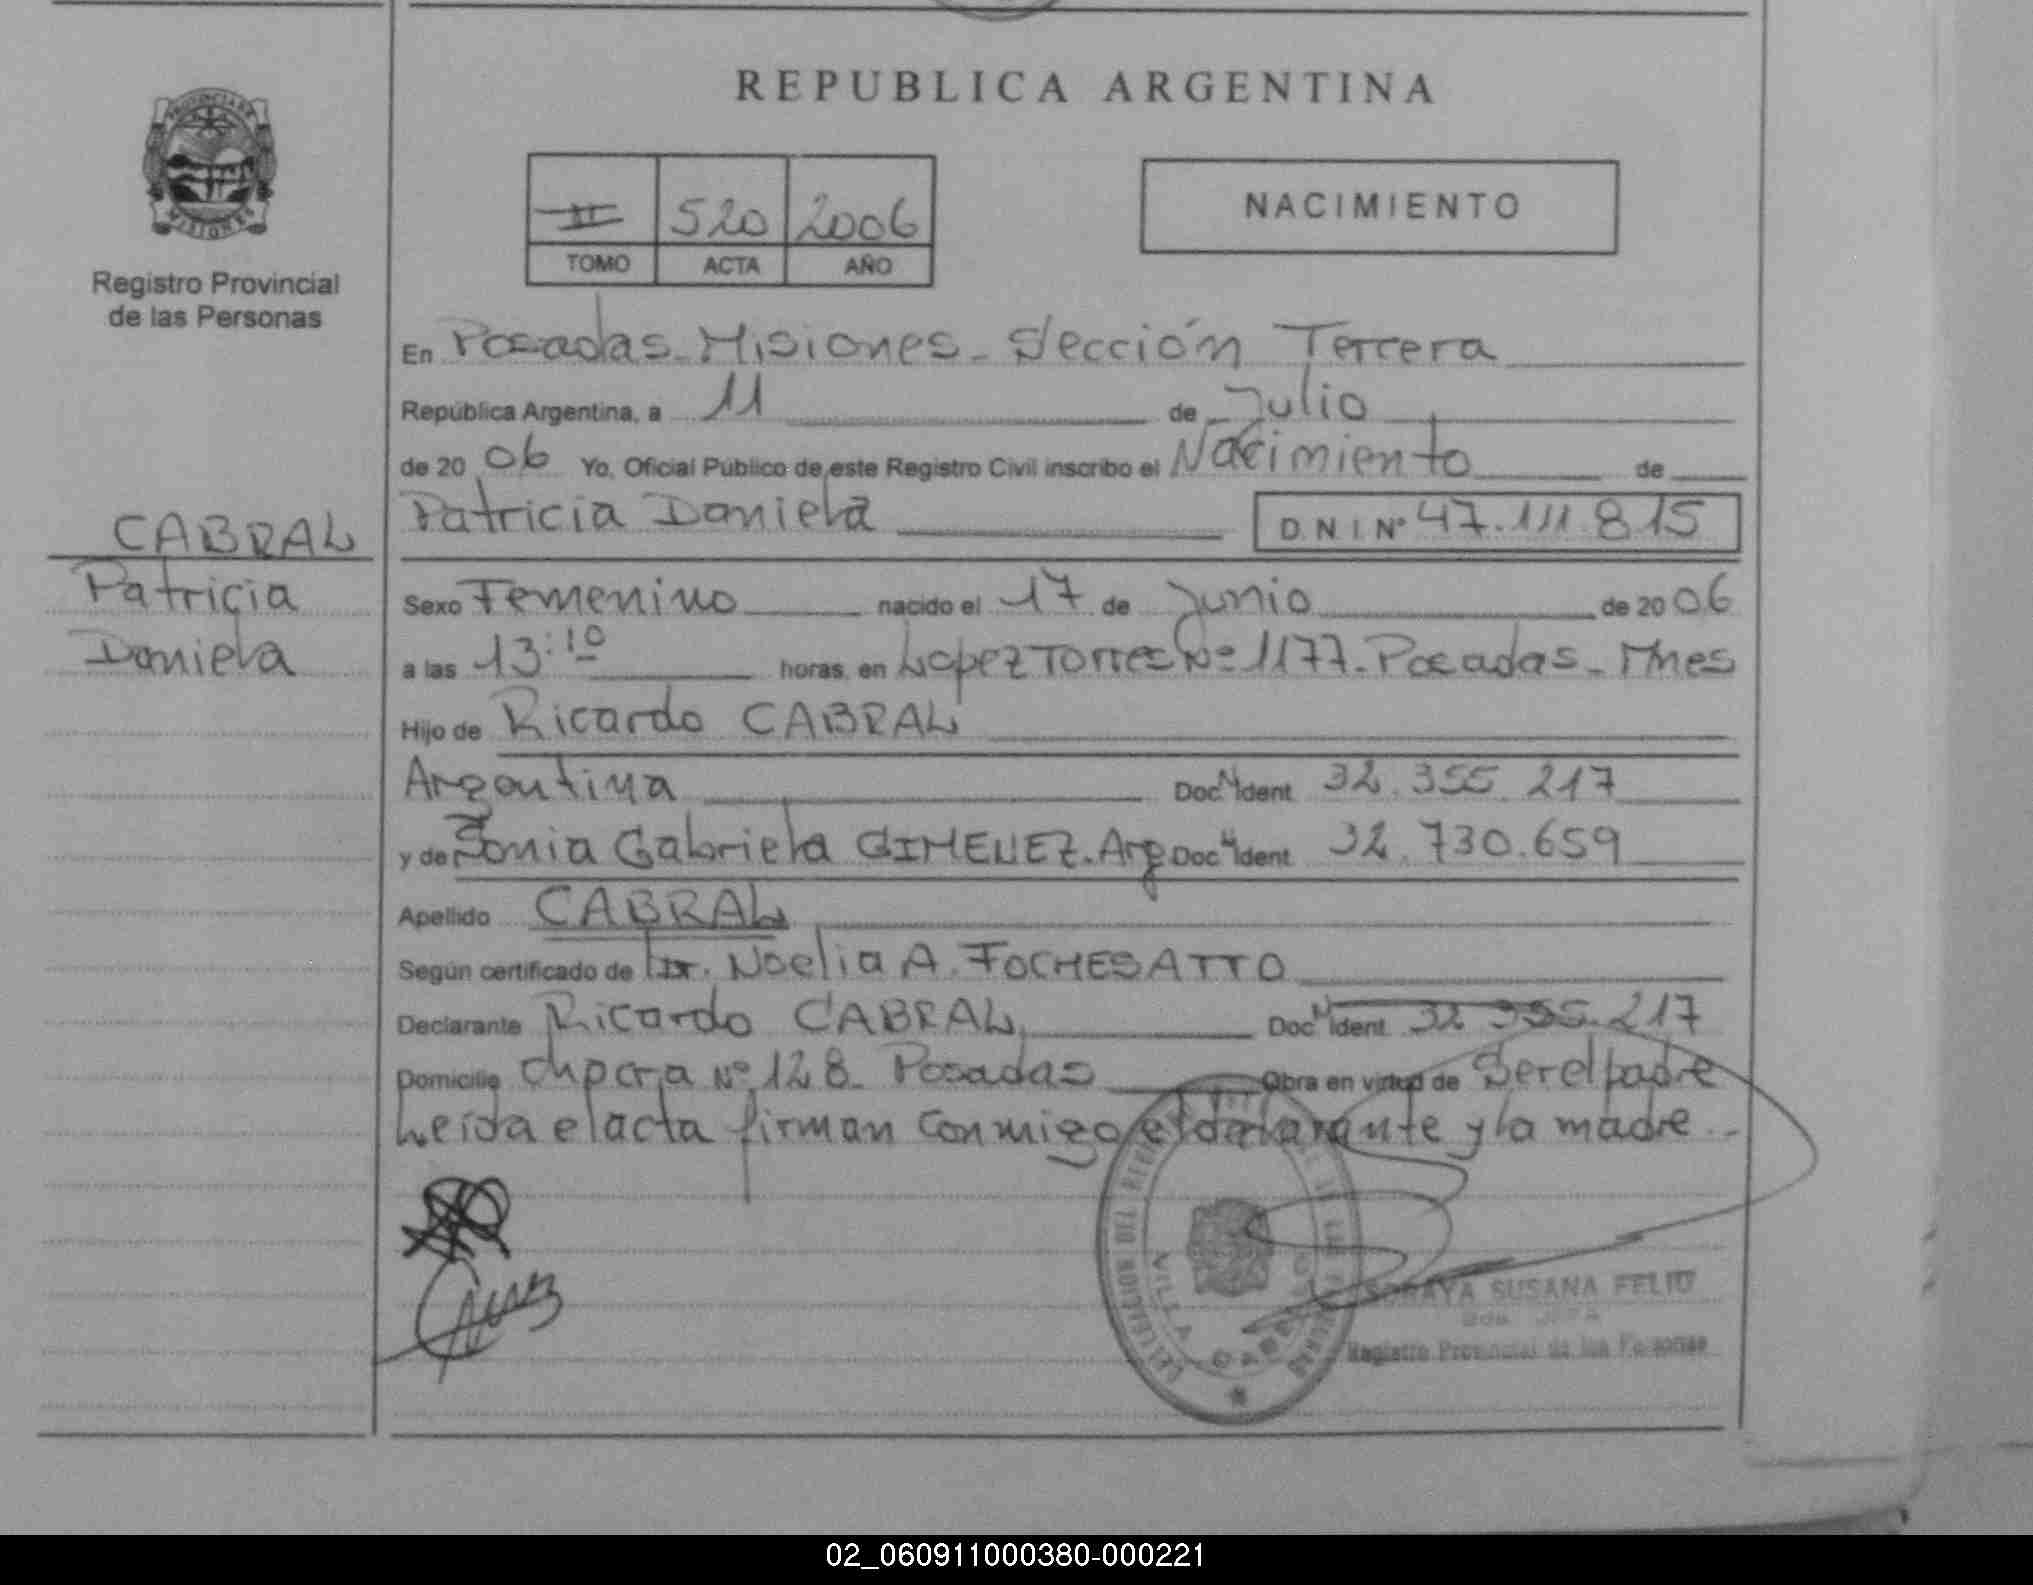 REPUBLICA ARGENTINA
PROVINCIA DE
MISIONES
Registro Provincial
de las Personas
II 520 2006
TOMO ACTA AÑO
NACIMIENTO
En Posadas - Misiones - Sección Tercera
República Argentina, a 11 de Julio
de 20 06 Yo, Oficial Público de este Registro Civil inscribo el Nacimiento de
Patricia Daniela D.N.I. Nº 47.111.815
CABRAL
Patricia
Daniela
Sexo Femenino nacido el 17 de Junio de 20 06
a las 13:10 horas, en Lopez Torres Nº 1177 - Posadas - Mnes
Hijo de Ricardo CABRAL
Argentina Doc. N Ident. 32.355.217
y de Sonia Gabriela GIMENEZ. Arg Doc. N Ident. 32.730.659
Apellido CABRAL
Según certificado de Dr. Noelia A. FOCHESATTO
Declarante Ricardo CABRAL Doc. N Ident. 32 355.217
Domicilio Chacra Nº 128 - Posadas Obra en virtud de Ser el padre
Leida el acta firman conmigo el declarante y la madre.-
SORAYA SUSANA FELIU
Registro Provincial de las Personas
02_060911000380-000221